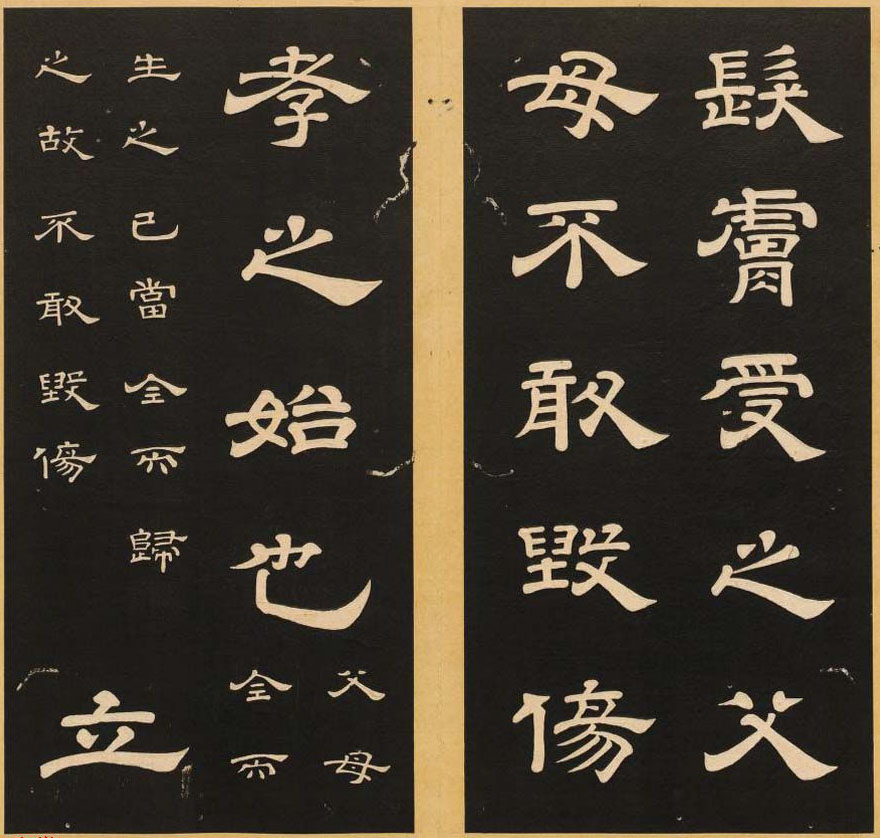 髮膚受之父
母不敢毀傷
孝之始也
父母
全而
生之已當全而歸
之故不敢毀傷
立